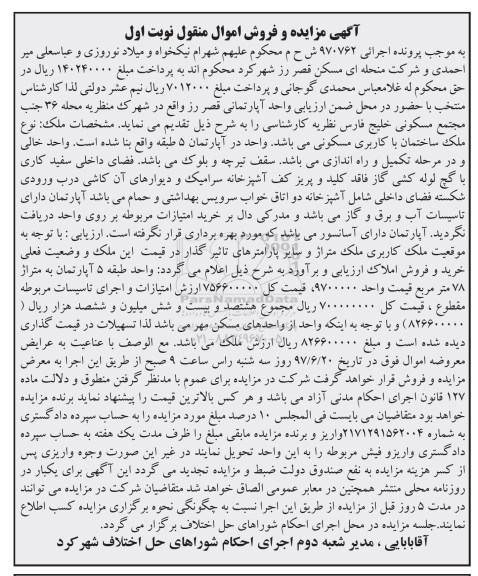 آگهی مزایده و فروش اموال منقول نوبت اول
به موجب پرونده اجرائی ۹۷۰۷۶۲ ش ح م محکوم علیهم شهرام نیکخواه و میلاد نوروزی و عباسعلی میر
احمدی و شرکت منحله ای مسکن قصر رز شهرکرد محکوم اند به پرداخت مبلغ ۱۴۰۲۴۰۰۰۰ ریال در
حق محکوم له غلامعباس محمدی گوجانی و پرداخت مبلغ ۷۰۱۲۰۰۰ ریال نیم عشر دولتی لذا کارشناس
منتخب با حضور در محل ضمن ارزیابی واحد آپارتمانی قصر رز واقع در شهرک منظریه محله ۳۶ جنب
مجتمع مسکونی خلیج فارس نظریه کارشناسی را به شرح ذیل تقدیم می نماید. مشخصات ملک: نوع
ملک ساختمان با کاربری مسکونی می باشد. واحد در آپارتمان ۵ طبقه واقع بنا شده است. واحد خالی
و در مرحله تکمیل و راه اندازی می باشد. سقف تیرچه و بلوک می باشد. فضای داخلی سفید کاری
با گچ لوله کشی گاز فاقد کلید و پریز کف آشپزخانه سرامیک و دیوارهای آن کاشی درب ورودی
شکسته فضای داخلی شامل آشپزخانه دو اتاق خواب سرویس بهداشتی و حمام می باشد آپارتمان دارای
تاسیسات آب و برق و گاز می باشد و مدرکی دال بر خرید امتیازات مربوطه بر روی واحد دریافت
نگردید. آپارتمان دارای آسانسور می باشد که مورد بهره برداری قرار نگرفته است. ارزیابی : با توجه به
موقعیت ملک کاربری ملک متراژ و سایر پارامترهای تاثیر گذار در قیمت این ملک و وضعیت فعلی
خرید و فروش املاک ارزیابی و برآورد به شرح ذیل اعلام می گردد: واحد طبقه ۵ آپارتمان به متراژ
۷۸ متر مربع قیمت واحد ۹۷۰۰۰۰۰، قیمت کل ۷۵۶۶۰۰۰۰۰ ارزش امتیازات و اجرای تاسیسات مربوطه
مقطوع ، قیمت کل ۷۰۰۰۰۰۰۰ ریال مجموع هشتصد و بیست و شش میلیون و ششصد هزار ریال (
۸۲۶۶۰۰۰۰۰) و با توجه به اینکه واحد از واحدهای مسکن مهر می باشد لذا تسهیلات در قیمت گذاری
دیده شده است و مبلغ ۸۲۶۶۰۰۰۰۰ ریال ارزش ملک می باشد. مع الوصف با عنایت به عرایض
معروضه اموال فوق در تاریخ ۹۷/۶/۲۰ روز سه شنبه راس ساعت ۹ صبح از طریق این اجرا به معرض
مزایده و فروش قرار خواهد گرفت شرکت در مزایده برای عموم با مدنظر گرفتن منطوق و دلالت ماده
۱۲۷ قانون اجرای احکام مدنی آزاد می باشد و هر کس بالاترین قیمت را پیشنهاد نماید برنده مزایده
خواهد بود متقاضیان می بایست فی المجلس ۱۰ درصد مبلغ مورد مزایده را به حساب سپرده دادگستری
به شماره ۲۱۷۱۲۹۱۵۶۲۰۰۴ واریز و برنده مزایده مابقی مبلغ را ظرف مدت یک هفته به حساب سپرده
دادگستری واریزو فیش مربوطه را به این واحد تحویل نمایند در غیر این صورت وجوه واریزی پس از
کسر هزینه مزایده به نفع صندوق دولت ضبط و مزایده تجدید می گردد این آگهی برای یکبار در
روزنامه محلی منتشر همچنین در معابر عمومی الصاق خواهد شد متقاضیان شرکت در مزایده می توانند
در مدت ۵ روز قبل از مزایده از طریق این اجرا نسبت به چگونگی نحوه برگزاری مزایده کسب اطلاع
نمایند.جلسه مزایده در محل اجرای احکام شوراهای حل اختلاف برگزار می گردد.
آقابابایی ، مدیر شعبه دوم اجرای احکام شوراهای حل اختلاف شهر کرد